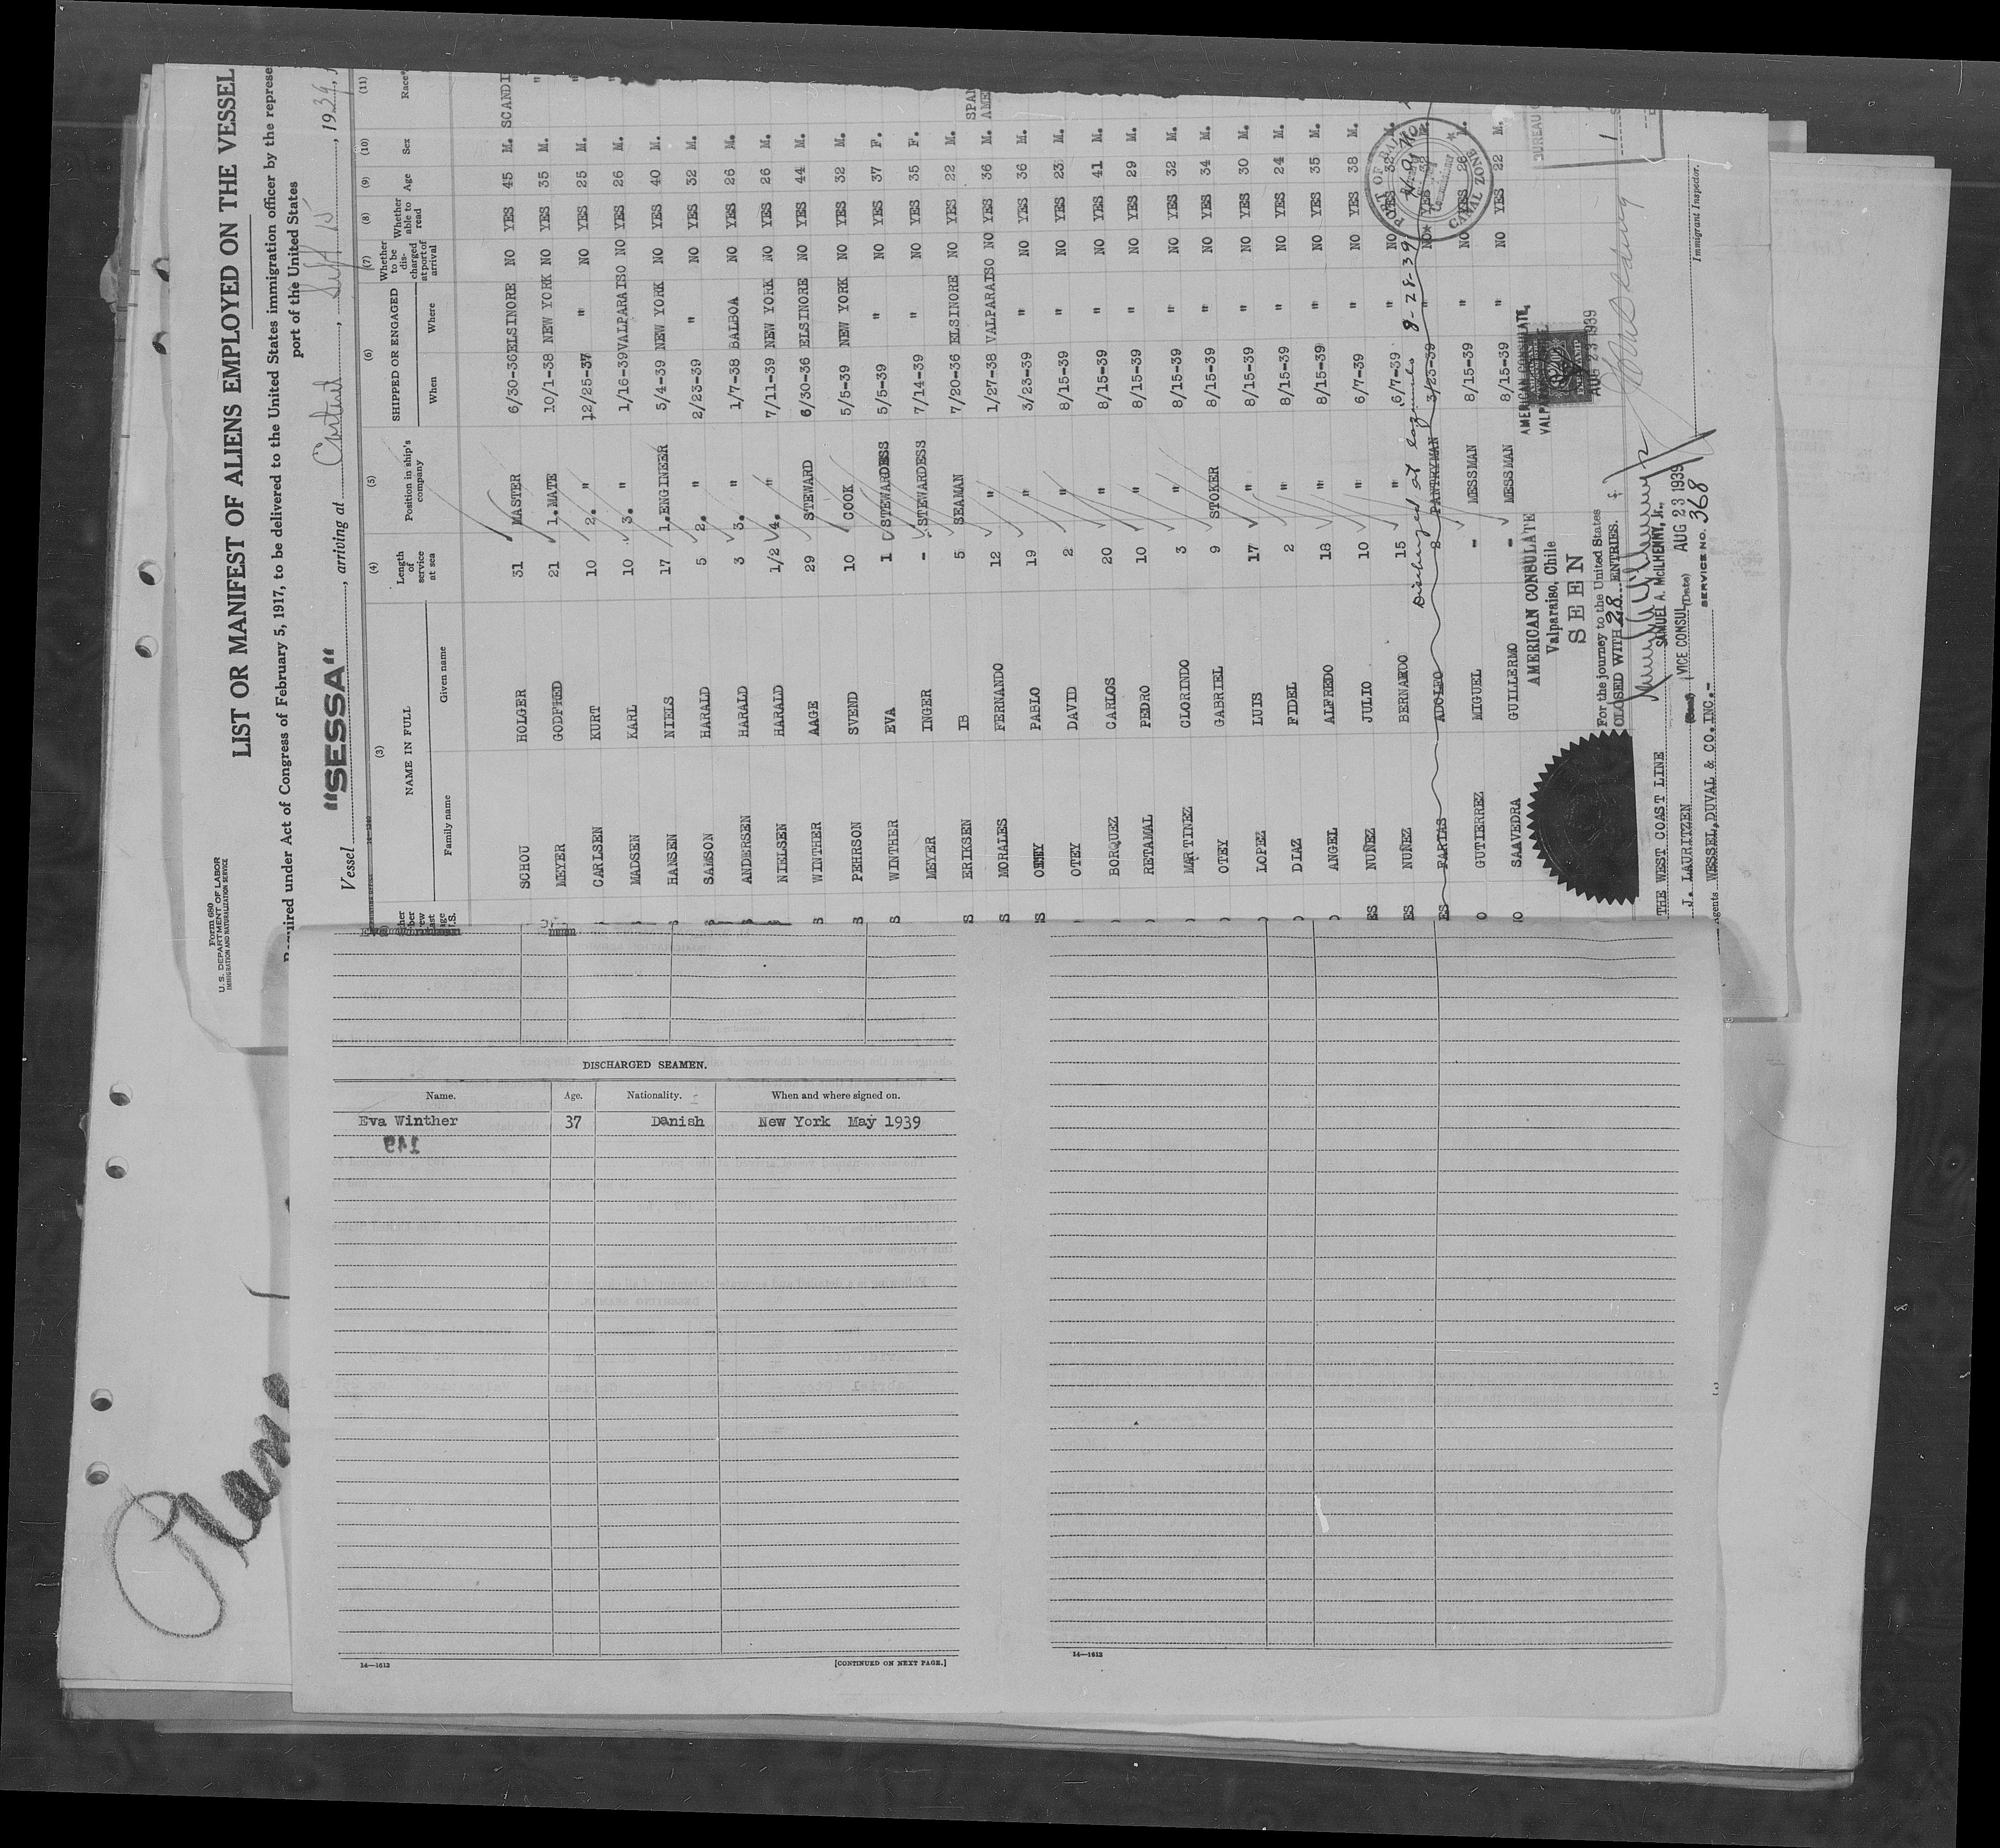 Form 680
U. S. DEPARTMENT OF LABOR
IMMIGRATION AND NATURALIZATION SERVICE
LIST OR MANIFEST OF ALIENS EMPLOYED ON THE VESSEL
Required under Act of Congress of February 5, 1917, to be delivered to the United States immigration officer by the represe
port of the United States
Vessel "SESSA", arriving at Carteret, Sept 15, 1939,
(3) (4) (5) (6) (7) (8) (9) (10) (11)
NAME IN FULL Length of service at sea Position in ship's company SHIPPED OR ENGAGED Whether to be discharged at port of arrival Whether able to read Age Sex Race*
Family name Given name When Where
SCHOU HOLGER 31 MASTER 6/30-36 ELSINORE NO YES 45 M. SCANDI
MEYER GODFRED 21 1. MATE 10/1-38 NEW YORK NO YES 35 M. "
CARLSEN KURT 10 2. " 12/25-37 " NO YES 25 M. "
MADSEN KARL 10 3. " 1/16-39 VALPARAISO NO YES 26 M. "
HANSEN NIELS 17 1. ENGINEER 5/4-39 NEW YORK NO YES 40 M.
SAMSON HARALD 5 2. " 2/23-39 " NO YES 32 M.
ANDERSEN HARALD 3 3. " 1/7-38 BALBOA NO YES 26 M.
NIELSEN HARALD 1/2 4. " 7/11-39 NEW YORK NO YES 26 M.
S WINTHER AAGE 29 STEWARD 6/30-36 ELSINORE NO YES 44 M.
S PEHRSON SVEND 10 COOK 5/5-39 NEW YORK NO YES 32 M.
S WINTHER EVA 1 STEWARDESS 5/5-39 " NO YES 37 F.
MEYER INGER - STEWARDESS 7/14-39 " NO YES 35 F.
S ERIKSEN IB 5 SEAMAN 7/20-36 ELSINORE NO YES 22 M.
S MORALES FERNANDO 12 " 1/27-38 VALPARAISO NO YES 36 M. SPAN AME
S OTEY PABLO 19 " 3/23-39 " NO YES 36 M.
OTEY DAVID 2 " 8/15-39 " NO YES 23 M.
BORQUEZ CARLOS 20 " 8/15-39 " NO YES 41 M.
RETAMAL PEDRO 10 " 8/15-39 " NO YES 29 M.
MARTINEZ CLORINDO 3 " 8/15-39 " NO YES 32 M.
OTEY GABRIEL 9 STOKER 8/15-39 " NO YES 34 M.
LOPEZ LUIS 17 " 8/15-39 " NO YES 30 M.
DIAZ FIDEL 2 " 8/15-39 " NO YES 24 M.
ANGEL ALFREDO 18 " 8/15-39 " NO YES 35 M.
ES NUÑEZ JULIO 10 " 6/7-39 " NO YES 38 M.
ES NUÑEZ BERNARDO 15 " 6/7-39 " NO YES 32 M.
Discharged at 9-28-39
ES PARTAS ADOLFO 2 PANTRYMAN 3/23-39 " NO* YES 32 M.
O GUTIERREZ MIGUEL - MESSMAN 8/15-39 " NO YES 26 M.
NO SAAVEDRA GUILLERMO - MESSMAN 8/15-39 " NO YES 22 M.
PORT OF BALBOA
CANAL ZONE
BUREAU O
AMERICAN CONSULATE
Valparaiso, Chile
SEEN
For the journey to the United States
CLOSED WITH 28 ENTRIES.
SAMUEL A. McILHENNY, Jr.,
VICE CONSUL (Date) AUG 23 1939
SERVICE NO. 368
AMERICAN CONSULATE,
AUG 23 1939
THE WEST COAST LINE
J. LAURITZEN
Agents WESSEL, DUVAL & CO. INC.-
Immigrant Inspector.
DISCHARGED SEAMEN.
Name. Age. Nationality. When and where signed on.
Eva Winther 37 Danish New York May 1939
14—1613
[CONTINUED ON NEXT PAGE.]
14—1613